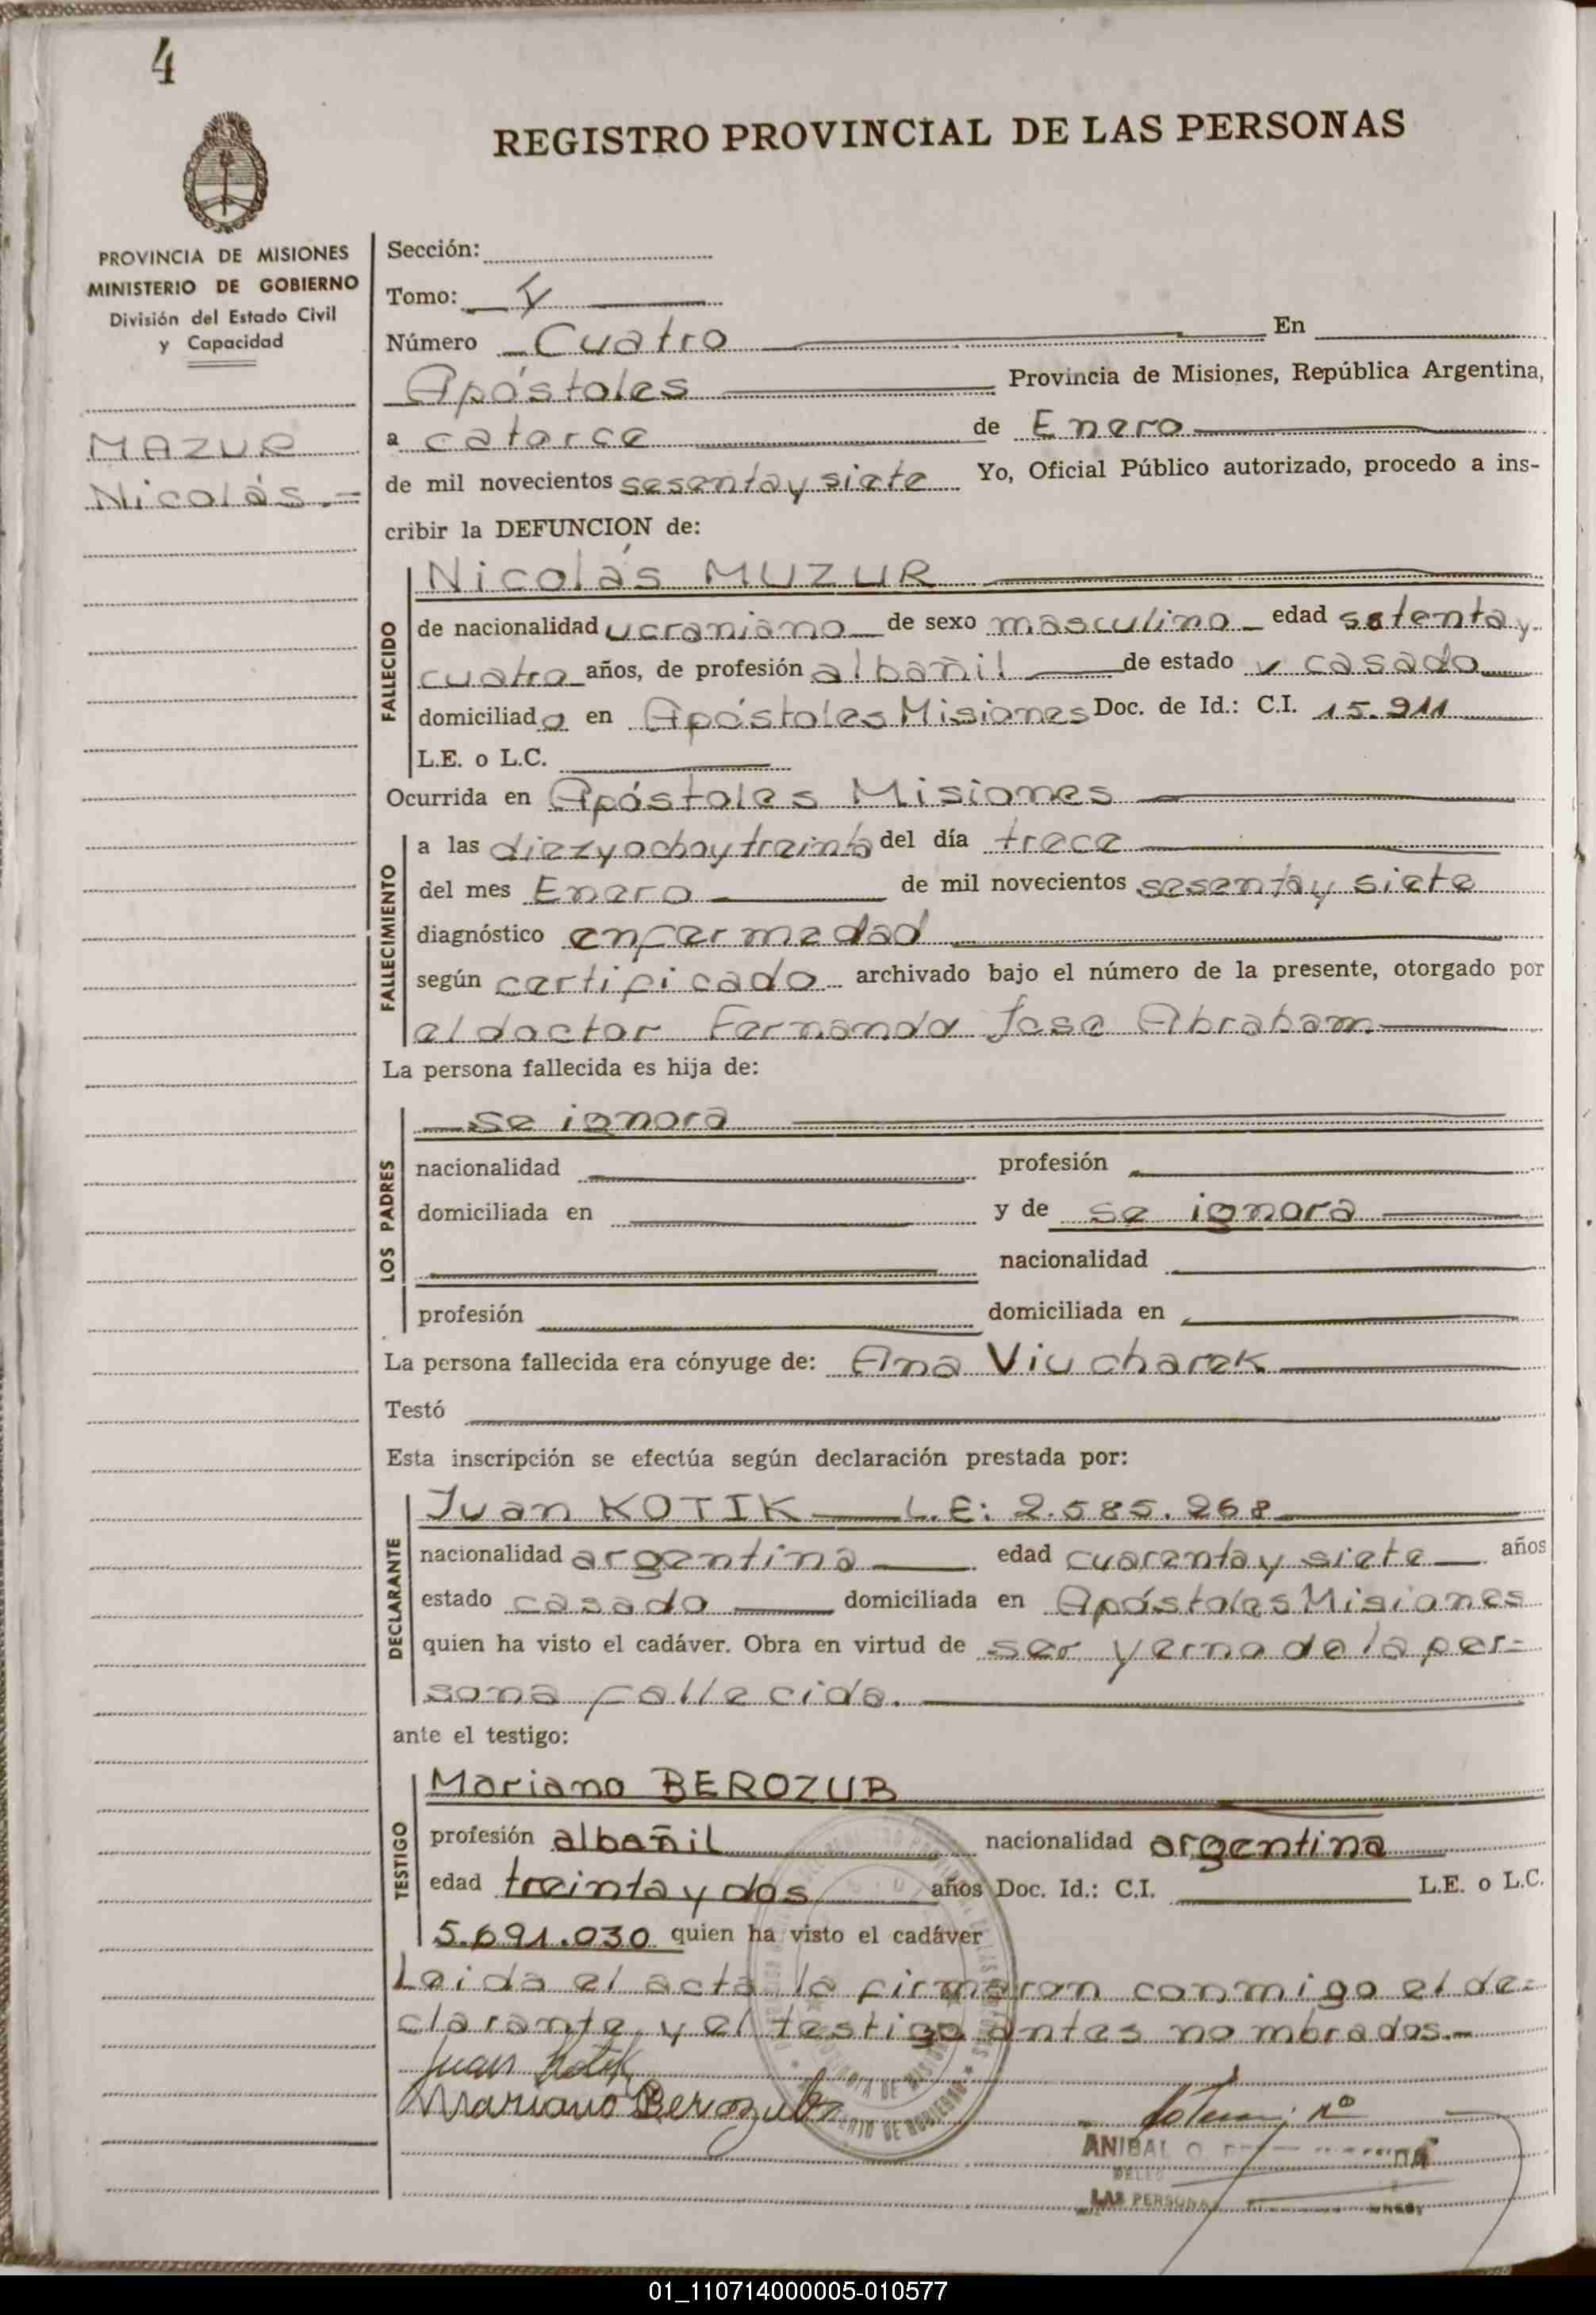 4
REGISTRO PROVINCIAL DE LAS PERSONAS
PROVINCIA DE MISIONES
MINISTERIO DE GOBIERNO
División del Estado Civil
y Capacidad
MAZUR
Nicolás.=
Sección:
Tomo: I
Número Cuatro En
Apóstoles Provincia de Misiones, República Argentina,
a catorce de Enero
de mil novecientos sesenta y siete Yo, Oficial Público autorizado, procedo a ins-
cribir la DEFUNCION de:
FALLECIDO
Nicolás MUZUR
de nacionalidad ucraniano de sexo masculino edad setenta y
cuatro años, de profesión albañil de estado casado
domiciliado en Apóstoles Misiones Doc. de Id.: C.I. 15.911
L.E. o L.C.
Ocurrida en Apóstoles Misiones
FALLECIMIENTO
a las diez y ocho y treinta del día trece
del mes Enero de mil novecientos sesenta y siete
diagnóstico enfermedad
según certificado archivado bajo el número de la presente, otorgado por
el doctor Fernando Jose Abraham
La persona fallecida es hija de:
LOS PADRES
se ignora
nacionalidad profesión
domiciliada en y de se ignora
nacionalidad
profesión domiciliada en
La persona fallecida era cónyuge de: Ana Viucharek
Testó
Esta inscripción se efectúa según declaración prestada por:
DECLARANTE
Juan KOTIK L.E: 2.585.268
nacionalidad argentina edad cuarenta y siete años
estado casado domiciliada en Apóstoles Misiones
quien ha visto el cadáver. Obra en virtud de ser yerno de la per=
sona fallecida.
ante el testigo:
TESTIGO
Mariano BEROZUB
profesión albañil nacionalidad argentina
edad treinta y dos años Doc. Id.: C.I. L.E. o L.C.
5.691.030 quien ha visto el cadáver
Leida el acta la firmaron conmigo el de=
clarante y el testigo antes nombrados.-
Juan Kotik
Mariano Berozub
ANIBAL O
LAS PERSONAS
01_110714000005-010577